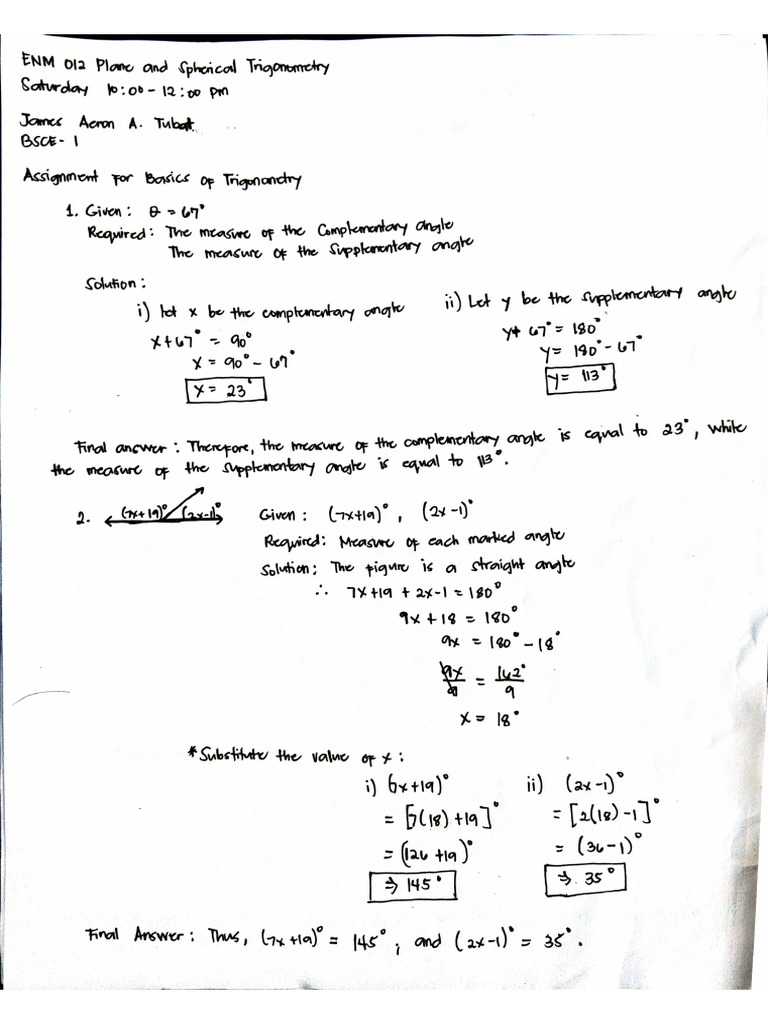 ENM 012 Plane and Spherical Trigonometry
Saturday 10:00 - 12:00 pm
James Aeron A. Tubat
BSCE - 1
Assignment for Basics of Trigonometry
1. Given: θ = 67°
Required: The measure of the Complementary angle
The measure of the Supplementary angle
Solution:
i) let x be the complementary angle
x + 67° = 90°
x = 90° - 67°
x = 23°
ii) Let y be the supplementary angle
y + 67° = 180°
y = 180° - 67°
y = 113°
Final answer: Therefore, the measure of the complementary angle is equal to 23°, while
the measure of the supplementary angle is equal to 113°.
2. (7x+19)° (2x-1)°
Given: (7x+19)°, (2x-1)°
Required: Measure of each marked angle
Solution: The figure is a straight angle
∴ 7x+19 + 2x-1 = 180°
9x + 18 = 180°
9x = 180° - 18°
9x/9 = 162°/9
x = 18°
*Substitute the value of x:
i) (7x+19)°
= [7(18) + 19]°
= (126 + 19)°
⇒ 145°
ii) (2x-1)°
= [2(18) - 1]°
= (36-1)°
⇒ 35°
Final Answer: Thus, (7x+19)° = 145°; and (2x-1)° = 35°.